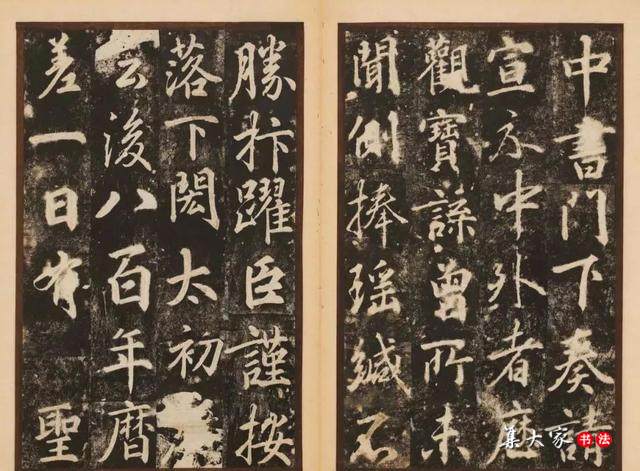 中書門下奏請
宣示中外者歷
觀寶諜曾所未
聞側捧瑤緘不
勝抃躍臣謹按
落下閎太初
云後八百年曆
差一日有聖
集大家 书法